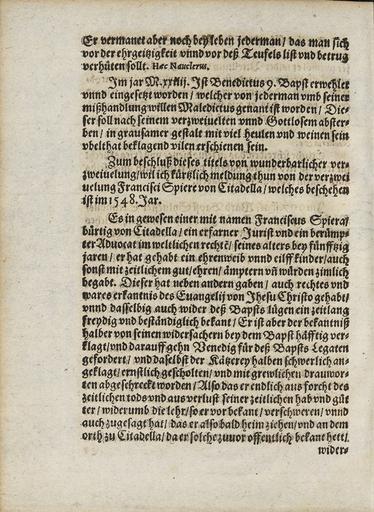 Er vermanet aber noch bey leben jederman / das man sich
vor der ehrgeitzigkeit vnnd vor deß Teufels list vnd betrug
verhüten sollt. Hæc Nauclerus.
Im jar M.xxxiij. Ist Benedictus 9. Bapst erwehlet
vnnd eingesetzt worden / welcher von jederman vmb seiner
mißhandlung willen Maledictus genant ist worden / Die-
ser soll nach seinem verzweiuelten vnnd Gottlosem abster-
ben / in grausamer gestalt mit viel heulen vnd weinen sein
vbelthat beklagend vilen erschienen sein.
Zum beschluß dieses titels von wunderbarlicher ver-
zweiuelung / wil ich kürtzlich meldung thun von der verzwei-
uelung Francisci Spiere von Citadella / welches beschehen
ist im 1548. Jar.
Es ist gewesen einer mit namen Franciscus Spiera /
bürtig von Citadella / ein erfarner Jurist vnd ein berümp-
ter Aduocat im weltlichen rechtẽ / seines alters bey fünfftzig
jaren / er hat gehabt ein ehrenweib vnnd eilff kinder / auch
sonst mit zeitlichem gut / ehren / ämptern vñ würden zimlich
begabt. Dieser hat neben andern gaben / auch rechtes vnd
wares erkantnis des Euangelij von Jhesu Christo gehabt /
vnnd dasselbig auch wider deß Bapsts lügen ein zeitlang
freydig vnd bestándiglich bekant / Er ist aber der bekantniß
halber von seinen widersachern bey dem Bapst häfftig ver-
klagt / vnd darauff gehn Venedig für deß Bapsts Legaten
gefordert / vnd daselbst der Kätzerey halben schwerlich an-
geklagt / ernstlich gescholten / vnd mit grewlichen drauwor-
ten abgeschreckt worden / Also das er endlich aus forcht des
zeitlichen tods vnd aus verlust seiner zeitlichen hab vnd gü-
ter / widerumb die lehr / so er vor bekant / verschweren / vnnd
auch zugesagt hat / das er alsobald heim ziehen / vnd an dem
orth zu Citadella / da er solche zuuor offentlich bekant hett /
wider-